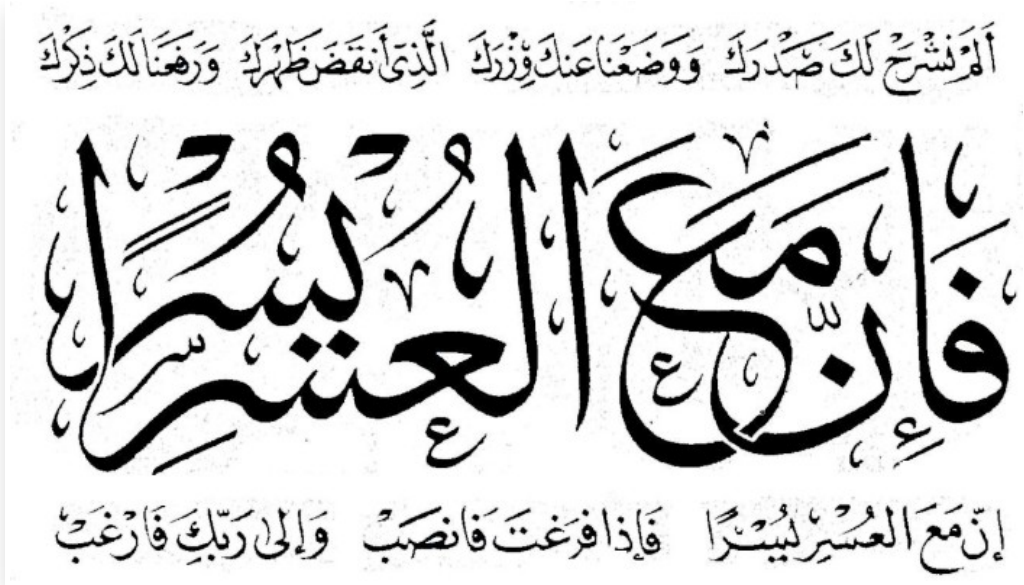 أَلَمْ نَشْرَحْ لَكَ صَدْرَكَ وَوَضَعْنَا عَنكَ وِزْرَكَ الَّذِىٓ أَنقَضَ ظَهْرَكَ وَرَفَعْنَا لَكَ ذِكْرَكَ
فَإِنَّ مَعَ الْعُسْرِ يُسْرًا
إِنَّ مَعَ الْعُسْرِ يُسْرًا فَإِذَا فَرَغْتَ فَانصَبْ وَإِلَىٰ رَبِّكَ فَارْغَبْ